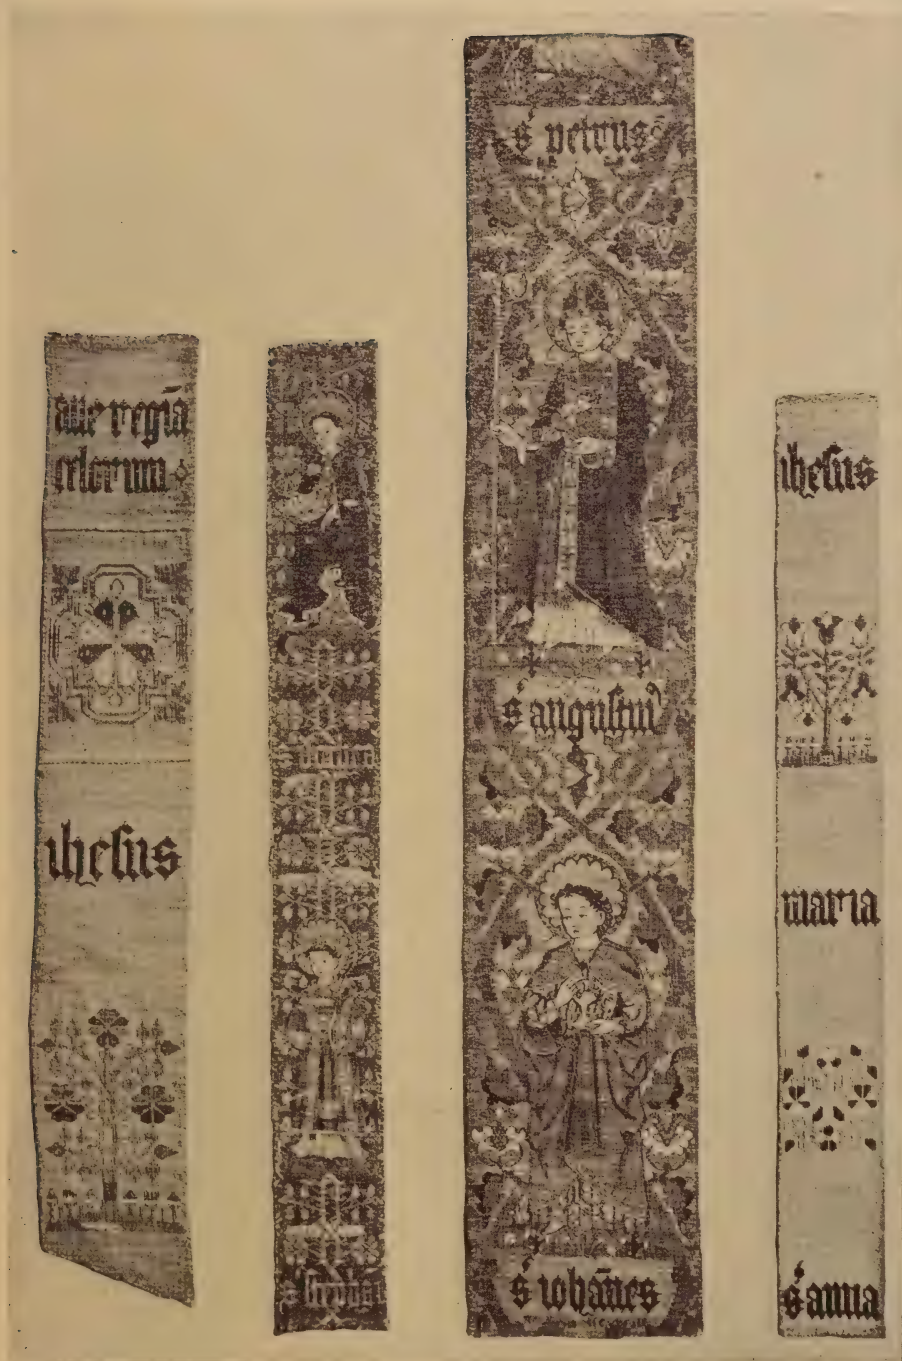 aue regīa
celorum
ihesus
ś petrus
ś augustinꝰ
ś iohānes
ihesus
maria
ś anna